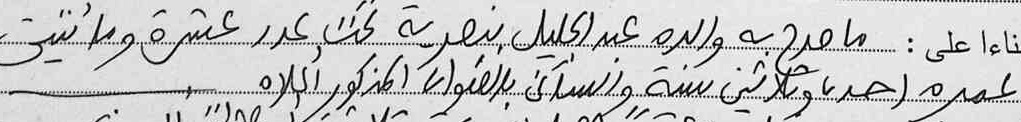 ناءا على : ما صرح به والده عبد الجليل بنصرية تحت عدد عشرة ومائتين
عمره إحدى وثلاثين سنة والساكن بالعنوان المذكور أعلاه